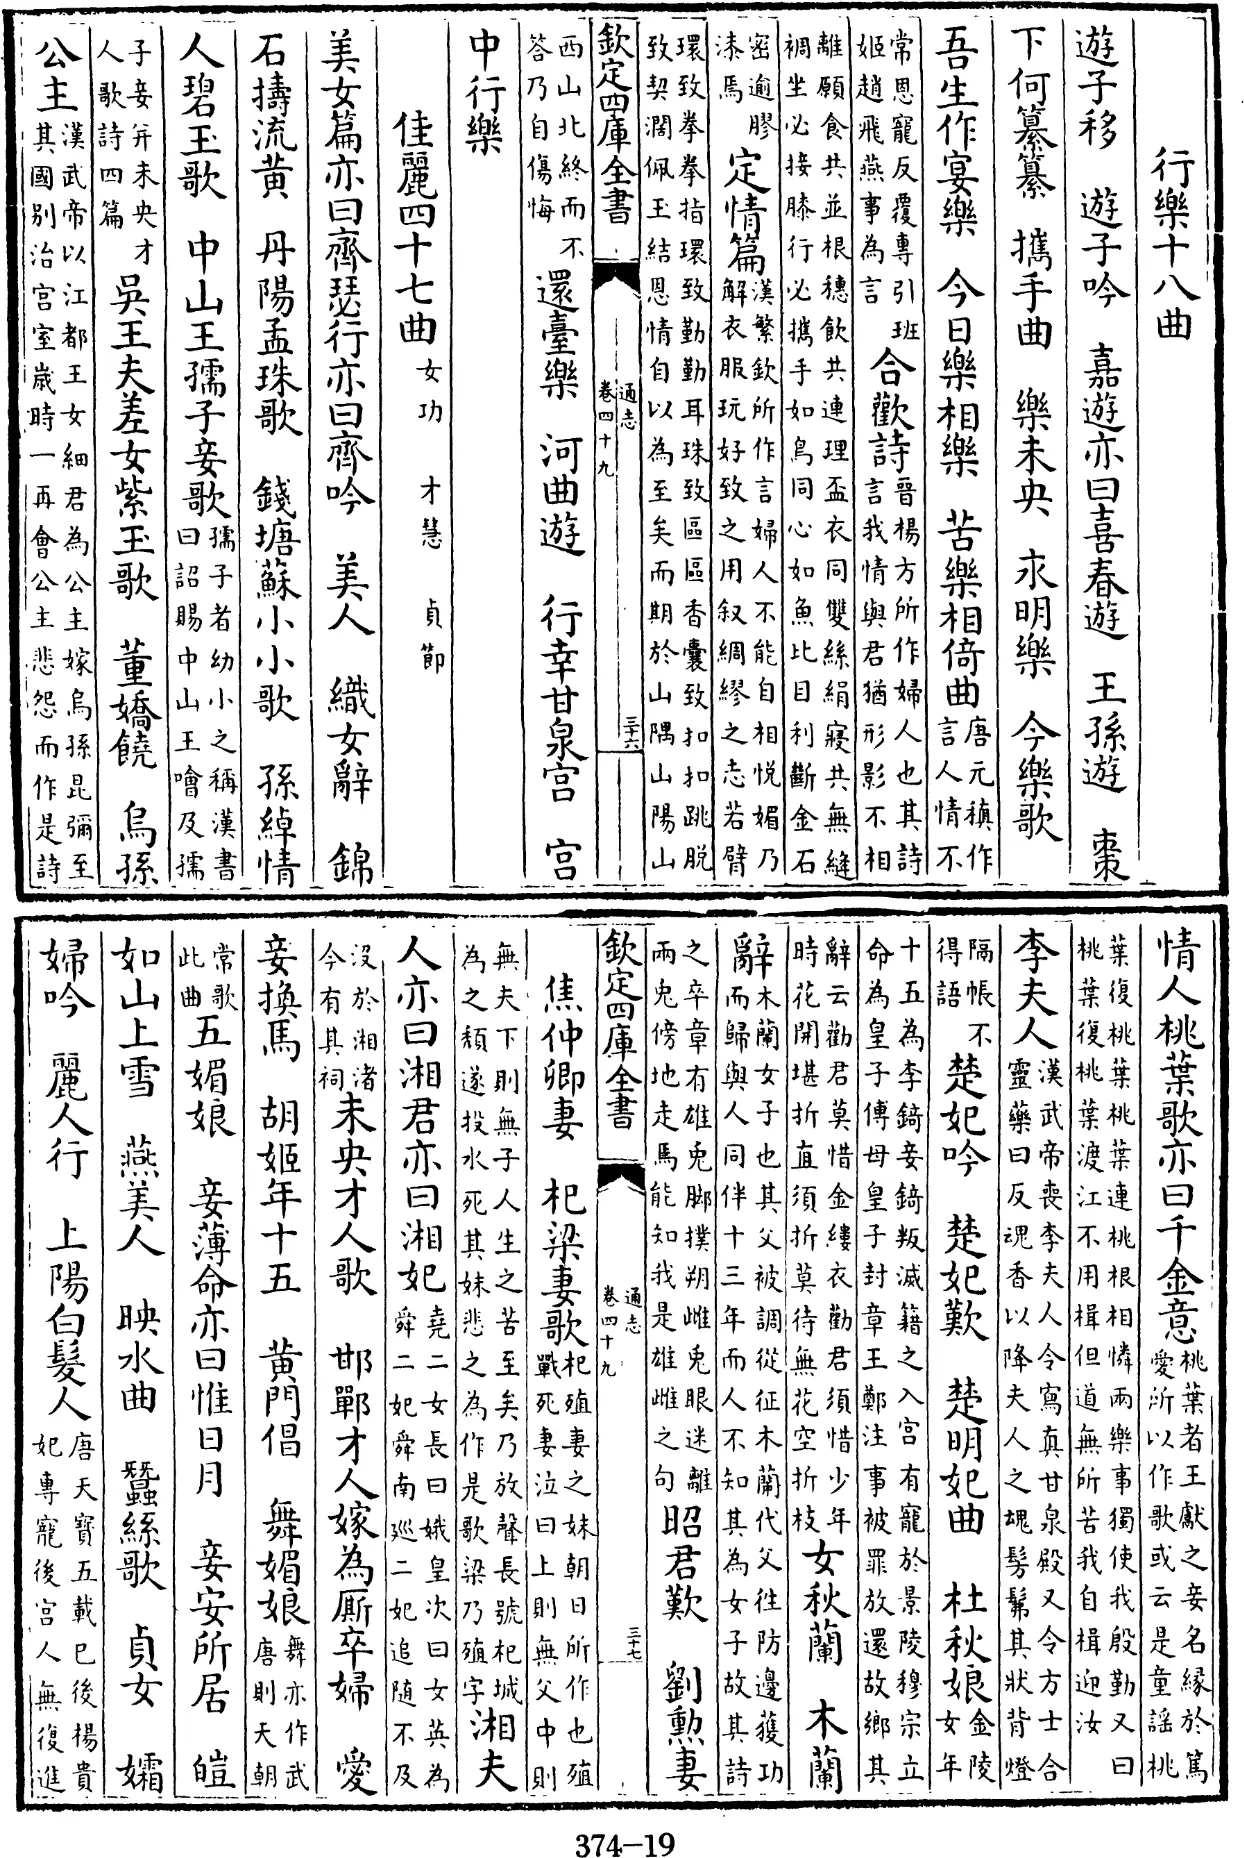 行樂十八曲
遊子移　遊子吟　嘉遊亦曰喜春遊　王孫遊　棗
下何纂纂　攜手曲　樂未央　永明樂　今樂歌
吾生作宴樂　今日樂相樂　苦樂相倚曲唐元稹作言人情不
常恩寵反覆專引班姬趙飛燕事為言　合歡詩晉楊方所作婦人也其詩言我情與君猶形影不相
離願食共並根穗飲共連理盃衣同雙絲絹寢共無縫裯坐必接膝行必攜手如鳥同心如魚比目利斷金石
密逾膠漆焉　定情篇漢繁欽所作言婦人不能自相悅媚乃解衣服玩好致之用叙綢繆之志若臂
環致拳拳指環致勤勤耳珠致區區香囊致扣扣跳脫致契濶佩玉結恩情自以為至矣而期於山隅山陽山
欽定四庫全書　通志卷四十九　三十六
西山北終而不答乃自傷悔　還臺樂　河曲遊　行幸甘泉宮　宮
中行樂
佳麗四十七曲女功　才慧　貞節
美女篇亦曰齊瑟行亦曰齊吟　美人　織女辭　錦
石擣流黄　丹陽孟珠歌　錢塘蘇小小歌　孫綽情
人碧玉歌　中山王孺子妾歌孺子者幼小之稱漢書曰詔賜中山王噲及孺
子妾并未央才人歌詩四篇　吳王夫差女紫玉歌　董嬌饒　烏孫
公主漢武帝以江都王女細君為公主嫁烏孫昆彌至其國别治宮室嵗時一再會公主悲怨而作是詩
情人桃葉歌亦曰千金意桃葉者王獻之妾名緣於篤愛所以作歌或云是童謡桃
葉復桃葉桃葉連桃根相憐兩樂事獨使我殷勤又曰桃葉復桃葉渡江不用楫但道無所苦我自楫迎汝
李夫人漢武帝喪李夫人令寫真甘泉殿又令方士合靈藥曰反魂香以降夫人之魂髣髴其狀背燈
隔帳不得語　楚妃吟　楚妃歎　楚明妃曲　杜秋娘金陵女年
十五為李錡妾錡叛滅籍之入宮有寵於景陵穆宗立命為皇子傅母皇子封章王鄭注事被罪放還故鄉其
辭云勸君莫惜金縷衣勸君須惜少年時花開堪折直須折莫待無花空折枝　女秋蘭　木蘭
辭木蘭女子也其父被調從征木蘭代父徃防邊獲功而歸與人同伴十三年而人不知其為女子故其詩
之卒章有雄兎脚撲朔雌兎眼迷離兩兎傍地走焉能知我是雄雌之句　昭君歎　劉勲妻
欽定四庫全書　通志卷四十九　三十七
焦仲卿妻　杞梁妻歌杞殖妻之妹朝日所作也殖戰死妻泣曰上則無父中則
無夫下則無子人生之苦至矣乃放聲長號杞城為之頽遂投水死其妹悲之為作是歌梁乃殖字　湘夫
人亦曰湘君亦曰湘妃堯二女長曰娥皇次曰女英為舜二妃舜南廵二妃追随不及
沒於湘渚今有其祠　未央才人歌　邯鄲才人嫁為厮卒婦　愛
妾換馬　胡姬年十五　黄門倡　舞媚娘舞亦作武唐則天朝
常歌此曲　五媚娘　妾薄命亦曰惟日月　妾安所居　皚
如山上雪　燕美人　映水曲　蠶絲歌　貞女　孀
婦吟　麗人行　上陽白髮人唐天寶五載巳後楊貴妃專寵後宮人無復進
374—19